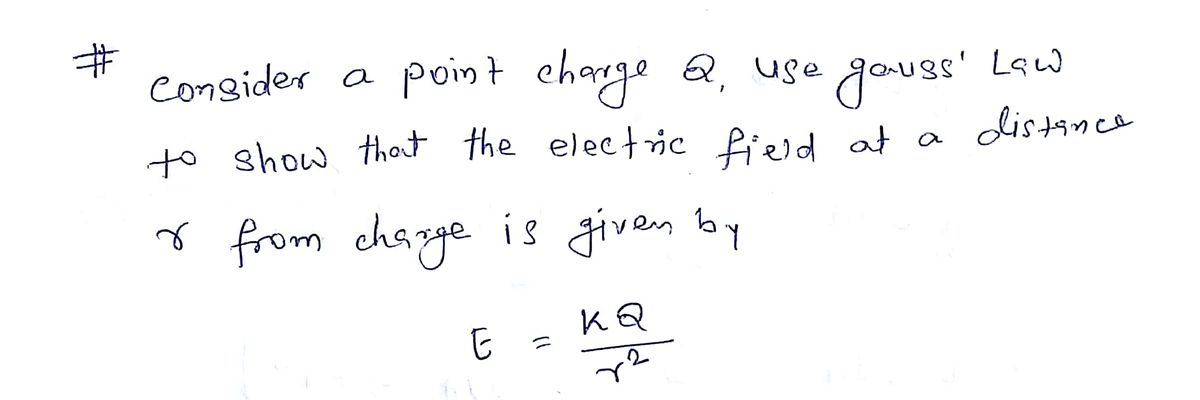 # Consider a point charge Q, use gauss' Law
to show that the electric field at a distance
r from charge is given by
E = KQ / r²